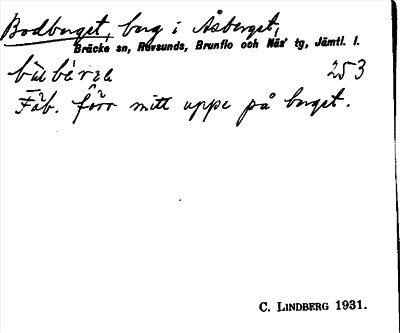 Bodberget, berg i Åsberget,
Bräcke sn, Revsunds, Brunflo och Näs' tg, Jämtl. l.
bùbérʒe 253
Fäb. förr mitt uppe på berget.
C. LINDBERG 1931.